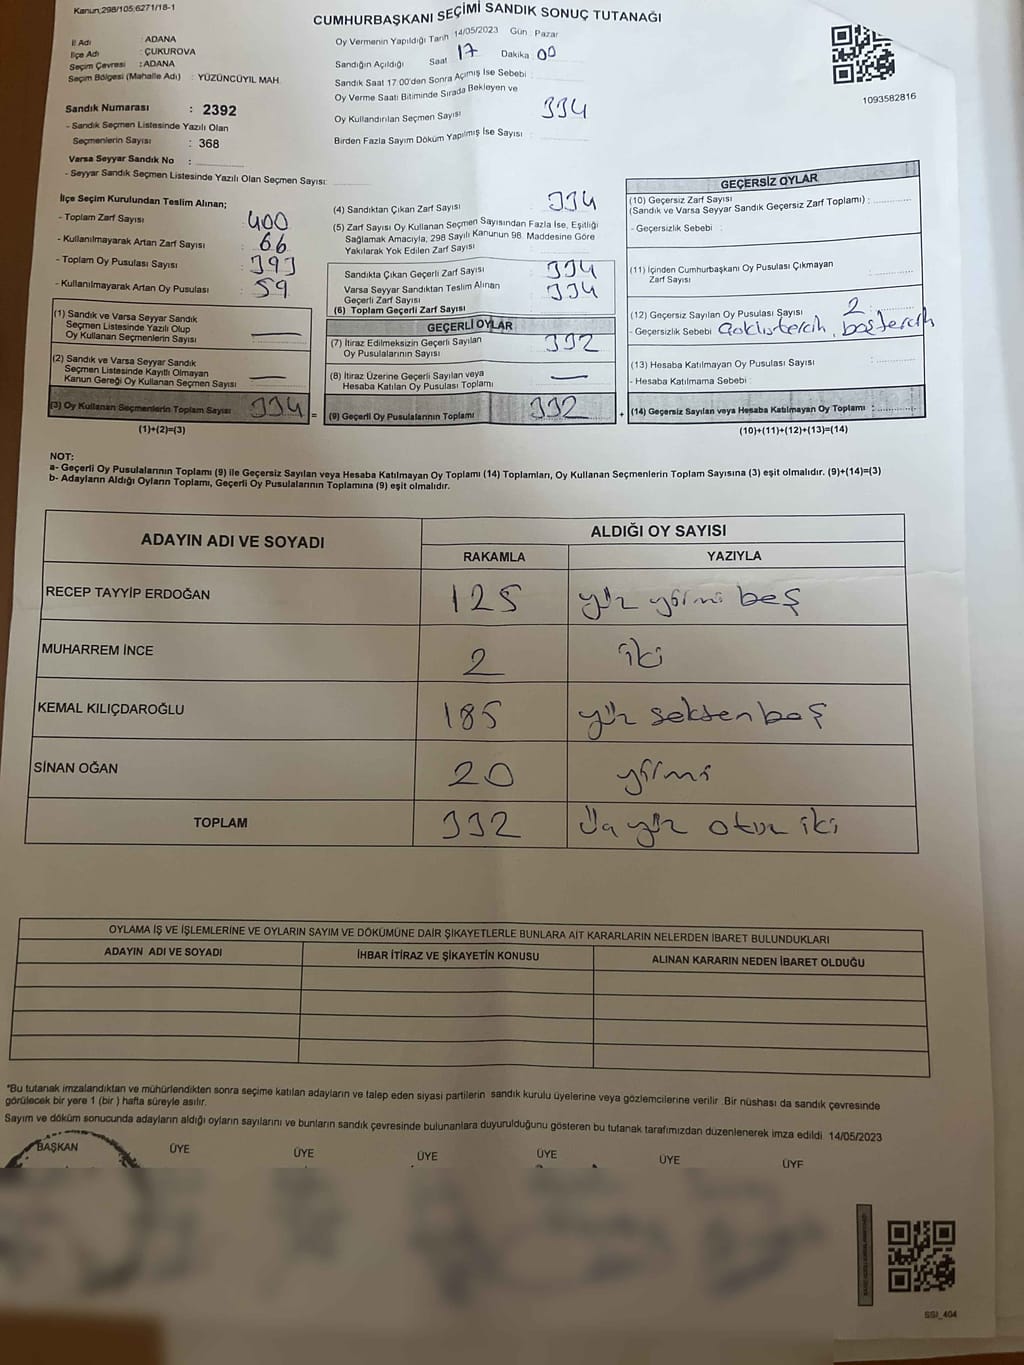 Kanun;298/105;6271/18-1
CUMHURBAŞKANI SEÇİMİ SANDIK SONUÇ TUTANAĞI
İl Adı : ADANA
İlçe Adı : ÇUKUROVA
Seçim Çevresi : ADANA
Seçim Bölgesi (Mahalle Adı) : YÜZÜNCÜYIL MAH.
Sandık Numarası : 2392
- Sandık Seçmen Listesinde Yazılı Olan
Seçmenlerin Sayısı : 368
Varsa Seyyar Sandık No :
- Seyyar Sandık Seçmen Listesinde Yazılı Olan Seçmen Sayısı:
Oy Vermenin Yapıldığı Tarih 14/05/2023 Gün : Pazar
Sandığın Açıldığı Saat 17 Dakika 00
Sandık Saat 17.00'den Sonra Açmış İse Sebebi :
Oy Verme Saati Bitiminde Sırada Bekleyen ve
Oy Kullandırılan Seçmen Sayısı 334
Birden Fazla Sayım Döküm Yapılmış İse Sayısı :
1093582816
İlçe Seçim Kurulundan Teslim Alınan;
- Toplam Zarf Sayısı : 400
- Kullanılmayarak Artan Zarf Sayısı : 66
- Toplam Oy Pusulası Sayısı : 393
- Kullanılmayarak Artan Oy Pusulası : 59
(1) Sandık ve Varsa Seyyar Sandık
Seçmen Listesinde Yazılı Olup
Oy Kullanan Seçmenlerin Sayısı —
(2) Sandık ve Varsa Seyyar Sandık
Seçmen Listesinde Kayıtlı Olmayan
Kanun Gereği Oy Kullanan Seçmen Sayısı —
(3) Oy Kullanan Seçmenlerin Toplam Sayısı 334 =
(1)+(2)=(3)
(4) Sandıktan Çıkan Zarf Sayısı 334
(5) Zarf Sayısı Oy Kullanan Seçmen Sayısından Fazla İse, Eşitliği
Sağlamak Amacıyla, 298 Sayılı Kanunun 98. Maddesine Göre
Yakılarak Yok Edilen Zarf Sayısı
Sandıkta Çıkan Geçerli Zarf Sayısı 334
Varsa Seyyar Sandıktan Teslim Alınan
Geçerli Zarf Sayısı 334
(6) Toplam Geçerli Zarf Sayısı
GEÇERLİ OYLAR
(7) İtiraz Edilmeksizin Geçerli Sayılan
Oy Pusulalarının Sayısı 332
(8) İtiraz Üzerine Geçerli Sayılan veya
Hesaba Katılan Oy Pusulası Toplamı —
(9) Geçerli Oy Pusulalarının Toplamı 332 +
GEÇERSİZ OYLAR
(10) Geçersiz Zarf Sayısı
(Sandık ve Varsa Seyyar Sandık Geçersiz Zarf Toplamı) :
- Geçersizlik Sebebi :
(11) İçinden Cumhurbaşkanı Oy Pusulası Çıkmayan
Zarf Sayısı
(12) Geçersiz Sayılan Oy Pusulası Sayısı 2
- Geçersizlik Sebebi
(13) Hesaba Katılmayan Oy Pusulası Sayısı :
- Hesaba Katılmama Sebebi :
(14) Geçersiz Sayılan veya Hesaba Katılmayan Oy Toplamı :
(10)+(11)+(12)+(13)=(14)
NOT:
a- Geçerli Oy Pusulalarının Toplamı (9) ile Geçersiz Sayılan veya Hesaba Katılmayan Oy Toplamı (14) Toplamları, Oy Kullanan Seçmenlerin Toplam Sayısına (3) eşit olmalıdır. (9)+(14)=(3)
b- Adayların Aldığı Oyların Toplamı, Geçerli Oy Pusulalarının Toplamına (9) eşit olmalıdır.
ADAYIN ADI VE SOYADI
ALDIĞI OY SAYISI
RAKAMLA YAZIYLA
RECEP TAYYİP ERDOĞAN 125 yüz yirmi beş
MUHARREM İNCE 2 iki
KEMAL KILIÇDAROĞLU 185 yüz seksen beş
SİNAN OĞAN 20 yirmi
TOPLAM 332 Üç yüz otuz iki
OYLAMA İŞ VE İŞLEMLERİNE VE OYLARIN SAYIM VE DÖKÜMÜNE DAİR ŞİKAYETLERLE BUNLARA AİT KARARLARIN NELERDEN İBARET BULUNDUKLARI
ADAYIN ADI VE SOYADI İHBAR İTİRAZ VE ŞİKAYETİN KONUSU ALINAN KARARIN NEDEN İBARET OLDUĞU
*Bu tutanak imzalandıktan ve mühürlendikten sonra seçime katılan adayların ve talep eden siyasi partilerin sandık kurulu üyelerine veya gözlemcilerine verilir .Bir nüshası da sandık çevresinde
görülecek bir yere 1 (bir ) hafta süreyle asılır.
Sayım ve döküm sonucunda adayların aldığı oyların sayılarını ve bunların sandık çevresinde bulunanlara duyurulduğunu gösteren bu tutanak tarafımızdan düzenlenerek imza edildi 14/05/2023
BAŞKAN ÜYE ÜYE ÜYE ÜYE ÜYE ÜYE
SSI_404